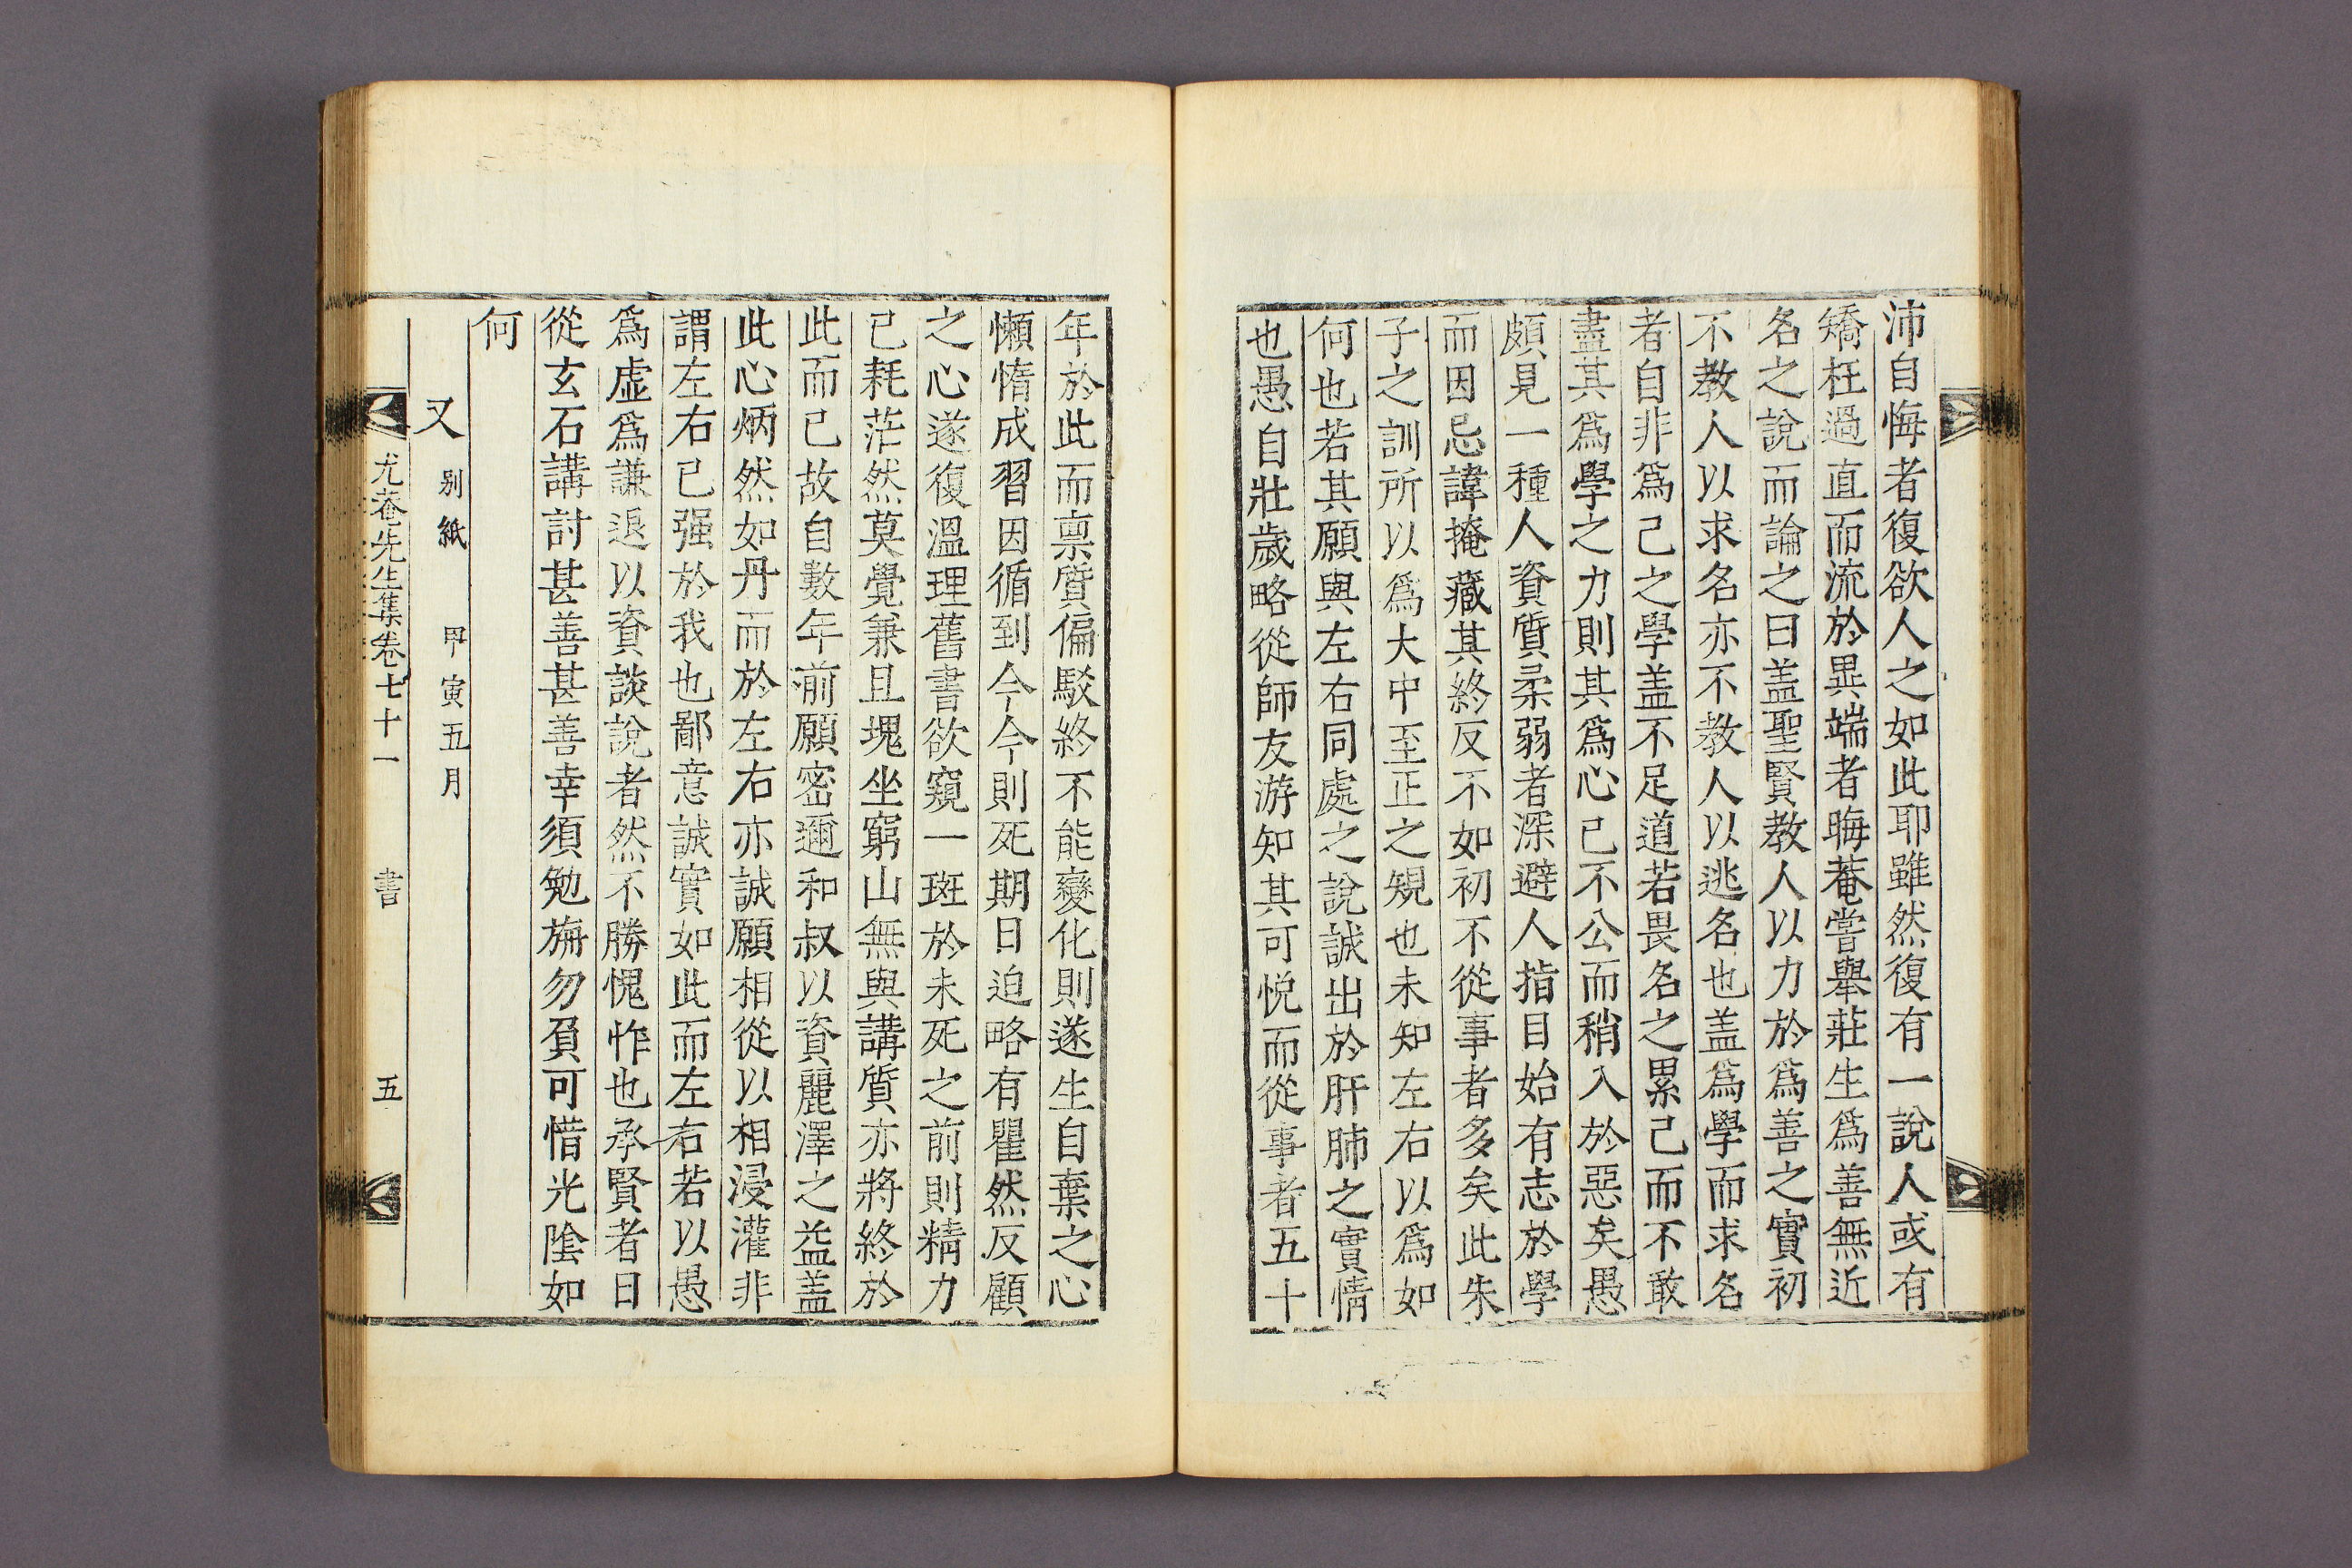 沛自悔者復欲人之如此耶雖然復有一說人或有
矯枉過直而流於異端者晦菴嘗擧莊生爲善無近
名之說而論之曰盖聖賢教人以力於爲善之實初
不教人以求名亦不教人以逃名也盖爲學而求名
者自非爲己之學盖不足道若畏名之累己而不敢
盡其爲學之力則其爲心已不公而稍入於惡矣愚
頗見一種人資質柔弱者深避人指目始有志於學
而因忌諱掩藏其終反不如初不從事者多矣此朱
子之訓所以爲大中至正之規也未知左右以爲如
何也若其願與左右同處之說誠出於肝肺之實情
也愚自壯歲略從師友游知其可悅而從事者五十
年於此而禀質偏駁終不能變化則遂生自棄之心
懶惰成習因循到今今則死期日迫略有瞿然反顧
之心遂復溫理舊書欲窺一斑於未死之前則精力
已耗茫然莫覺兼且塊坐窮山無與講質亦將終於
此而已故自數年前願密邇和叔以資麗澤之益盖
此心炳然如丹而於左右亦誠願相從以相浸灌非
謂左右已强於我也鄙意誠實如此而左右若以愚
爲虛爲謙退以資談說者然不勝愧怍也承賢者日
從玄石講討甚善甚善幸須勉旃勿負可惜光陰如
何
又 別紙 甲寅五月
尤菴先生集卷七十一 書 五